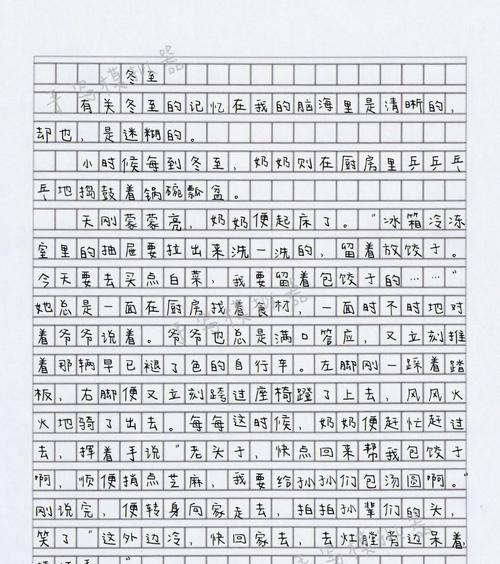 冬至
有关冬至的记忆在我的脑海里是清晰的,
却也,是迷糊的。
小时候每到冬至,奶奶则在厨房里乒乒乓
乓地捣鼓着锅碗瓢盆。
天刚蒙蒙亮,奶奶便起床了。“冰箱冷冻
室里的抽屉要拉出来洗一洗的,留着放饺子。
今天要去买点白菜,我要留着包饺子的……”
她总是一面在厨房找着食材,一面时不时地对
着爷爷说着。爷爷也总是满口答应,又立刻推
着那辆早已褪了色的自行车。左脚刚一踩着踏
板,右脚便又立刻跨过座椅蹬了上去,风风火
火地骑了出去。每每这时候,奶奶便赶忙赶过
去,挥着手说“老头子,快点回来帮我包饺子
啊,顺便捎点芝麻,我要给孙孙们包汤圆啊。”
刚说完,便转身向家走去,拍拍孙辈们的头,
笑了“这外边冷,快回家去,去灶膛旁边呆着